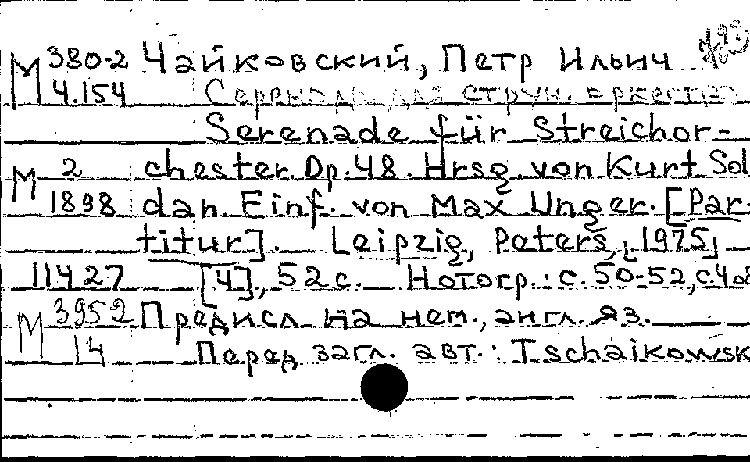 М 380-2 Чайковский, Петр Ильич
4.154 Серенада для струн. оркестра
Serenade für Streichor-
М 2 chester. Op. 48. Hrsg. von Kurt Sol
1898 dan. Einf. von Max Unger. [Par-
titur]. Leipzig, Peters, [1975]
11427 [4], 52 с. Нотогр.: с. 50-52, с. 4
М 3952 Предисл. на нем., англ. яз.
14 Перед загл. авт.: Tschaikowsk